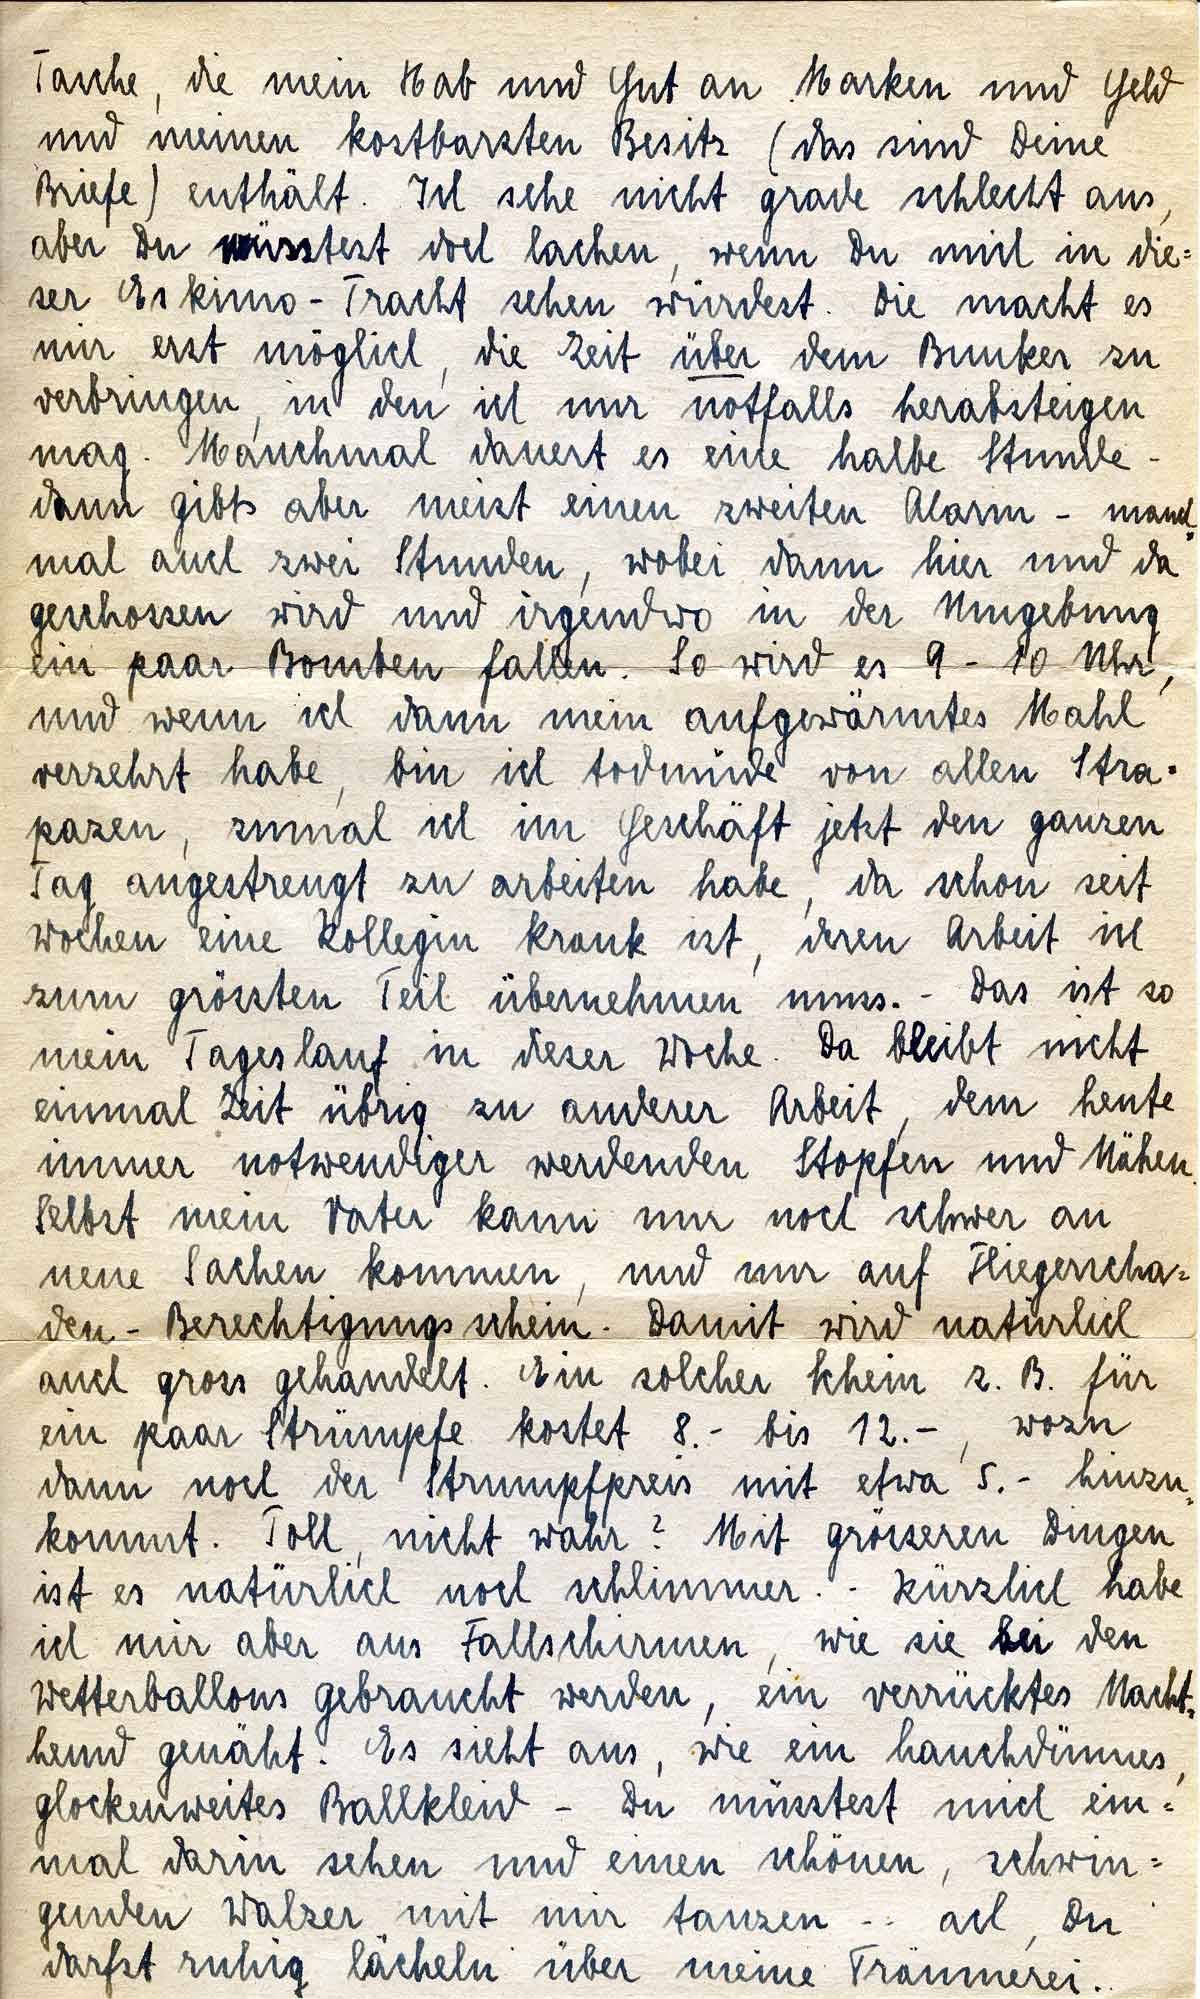 Tasche, die mein Hab und Gut an Marken und Geld
und meinen kostbarsten Besitz (das sind Deine
Briefe) enthält. Ich sehe nicht grade schlecht aus,
aber Du müsstest doch lachen, wenn Du mich in die=
ser Eskimo-Tracht sehen würdest. Die macht es
mir erst möglich, die Zeit über dem Bunker zu
verbringen, in den ich nur notfalls herabsteigen
mag. Manchmal dauert es eine halbe Stunde -
dann gibts aber meist einen zweiten Alarm - manch=
mal auch zwei Stunden, wobei dann hier und da
geschossen wird und irgendwo in der Umgebung
ein paar Bomben fallen. So wird es 9 - 10 Uhr,
und wenn ich dann mein aufgewärmtes Mahl
verzehrt habe, bin ich todmüde von allen Stra=
pazen, zumal ich im Geschäft jetzt den ganzen
Tag angestrengt zu arbeiten habe, da schon seit
Wochen eine Kollegin krank ist, deren Arbeit ich
zum grössten Teil übernehmen muss. - Das ist so
mein Tageslauf in dieser Woche. Da bleibt nicht
einmal Zeit übrig zu anderer Arbeit, dem heute
immer notwendiger werdenden Stopfen und Nähen.
Selbst mein Vater kann nur noch schwer an
neue Sachen kommen, und nur auf Fliegerscha=
den-Berechtigungsschein. Damit wird natürlich
auch gross gehandelt. Ein solcher Schein z. B. für
ein paar Strümpfe kostet 8.- bis 12.-, wozu
dann noch der Strumpfpreis mit etwa 5.- hinzu=
kommt. Toll, nicht wahr? Mit grösseren Dingen
ist es natürlich noch schlimmer. - Kürzlich habe
ich mir aber aus Fallschirmen, wie sie bei den
Wetterballons gebraucht werden, ein verrücktes Nacht=
hemd genäht. Es sieht aus, wie ein hauchdünnes,
glockenweites Ballkleid - Du müsstest mich ein=
mal darin sehen und einen schönen, schwin=
genden Walzer mit mir tanzen - . ach, Du
darfst ruhig lächeln über meine Träumerei..